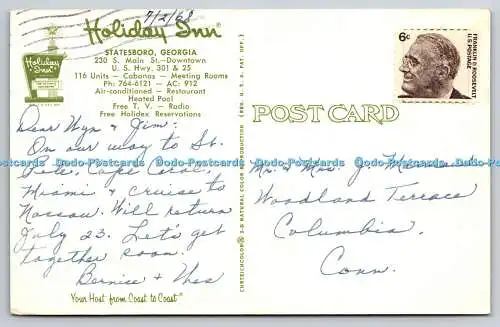 7/2/68
Holiday Inn
STATESBORO, GEORGIA
230 S. Main St.—Downtown
U. S. Hwy. 301 & 25
116 Units — Cabanas — Meeting Rooms
Ph: 764-6121 — AC: 912
Air-conditioned — Restaurant
Heated Pool
Free T. V. — Radio
Free Holidex Reservations
Dear Wyn & Jim:
On our way to St.
Pete, Cape Coral,
Miami & cruise to
Nassau. Will return
July 23. Let's get
together soon.
Bernice &
Your Host from Coast to Coast
CHRISTICHCOLOR 3-D NATURAL COLOR REPRODUCTION (REG. U. S. PAT. OFF.)
POST CARD
6c
FRANKLIN D. ROOSEVELT
U.S. POSTAGE
Mr. & Mrs. J.
Woodland Terrace
Columbia,
Conn.
Holiday Inn
Dodo-Postcards Dodo-Postcards Dodo-Postcards Dodo-Postcards Dodo-Postcards Dodo-Postcards